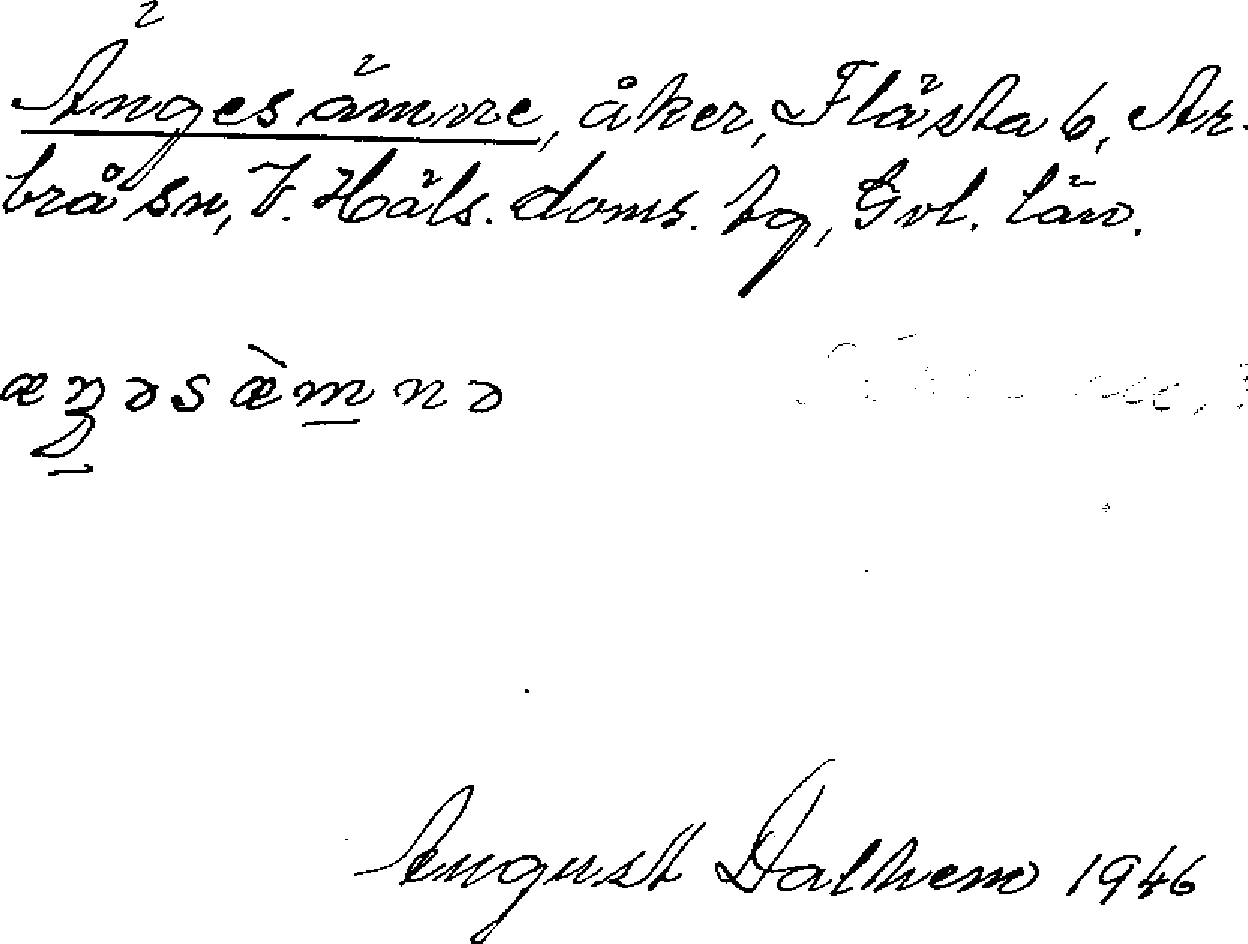 Ängesämne, åker, Flästa 6, Ar-
brå sn, V. Häls. doms. tg, Gvl. län.
August Dalhem 1946